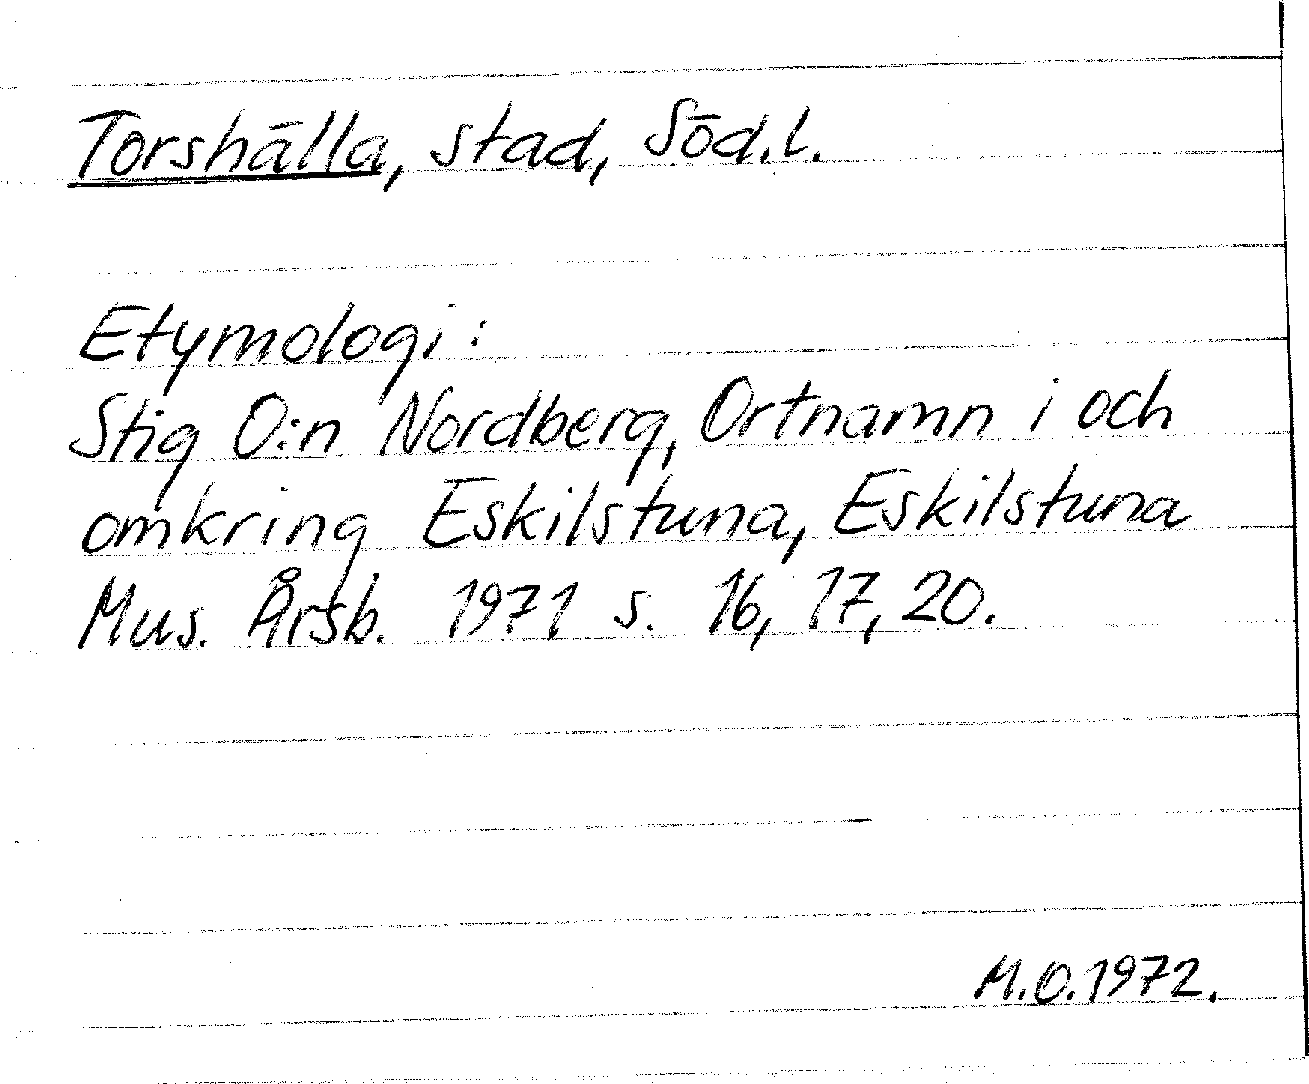 Torshälla, stad, Söd.l.
Etymologi:
Stig O:n Nordberg, Ortnamn i och
omkring Eskilstuna, Eskilstuna
Mus. Årsb. 1971 s. 16, 17, 20.
M.O.1972.